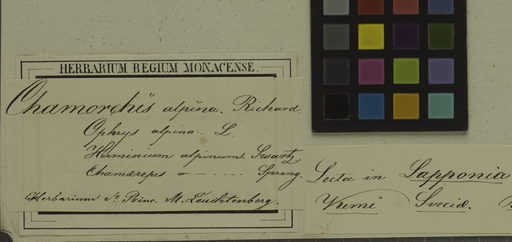 HERBARIUM REGIUM MONACENSE.
Chamorchis alpina. Richard.
Ophrys alpina. L.
Herminium alpinum. Swartz
Chamærepes — Spreng.
Herbarium Princ. M. Leuchtenberg.
Lecta in Lapponia
Kemi Svecia.